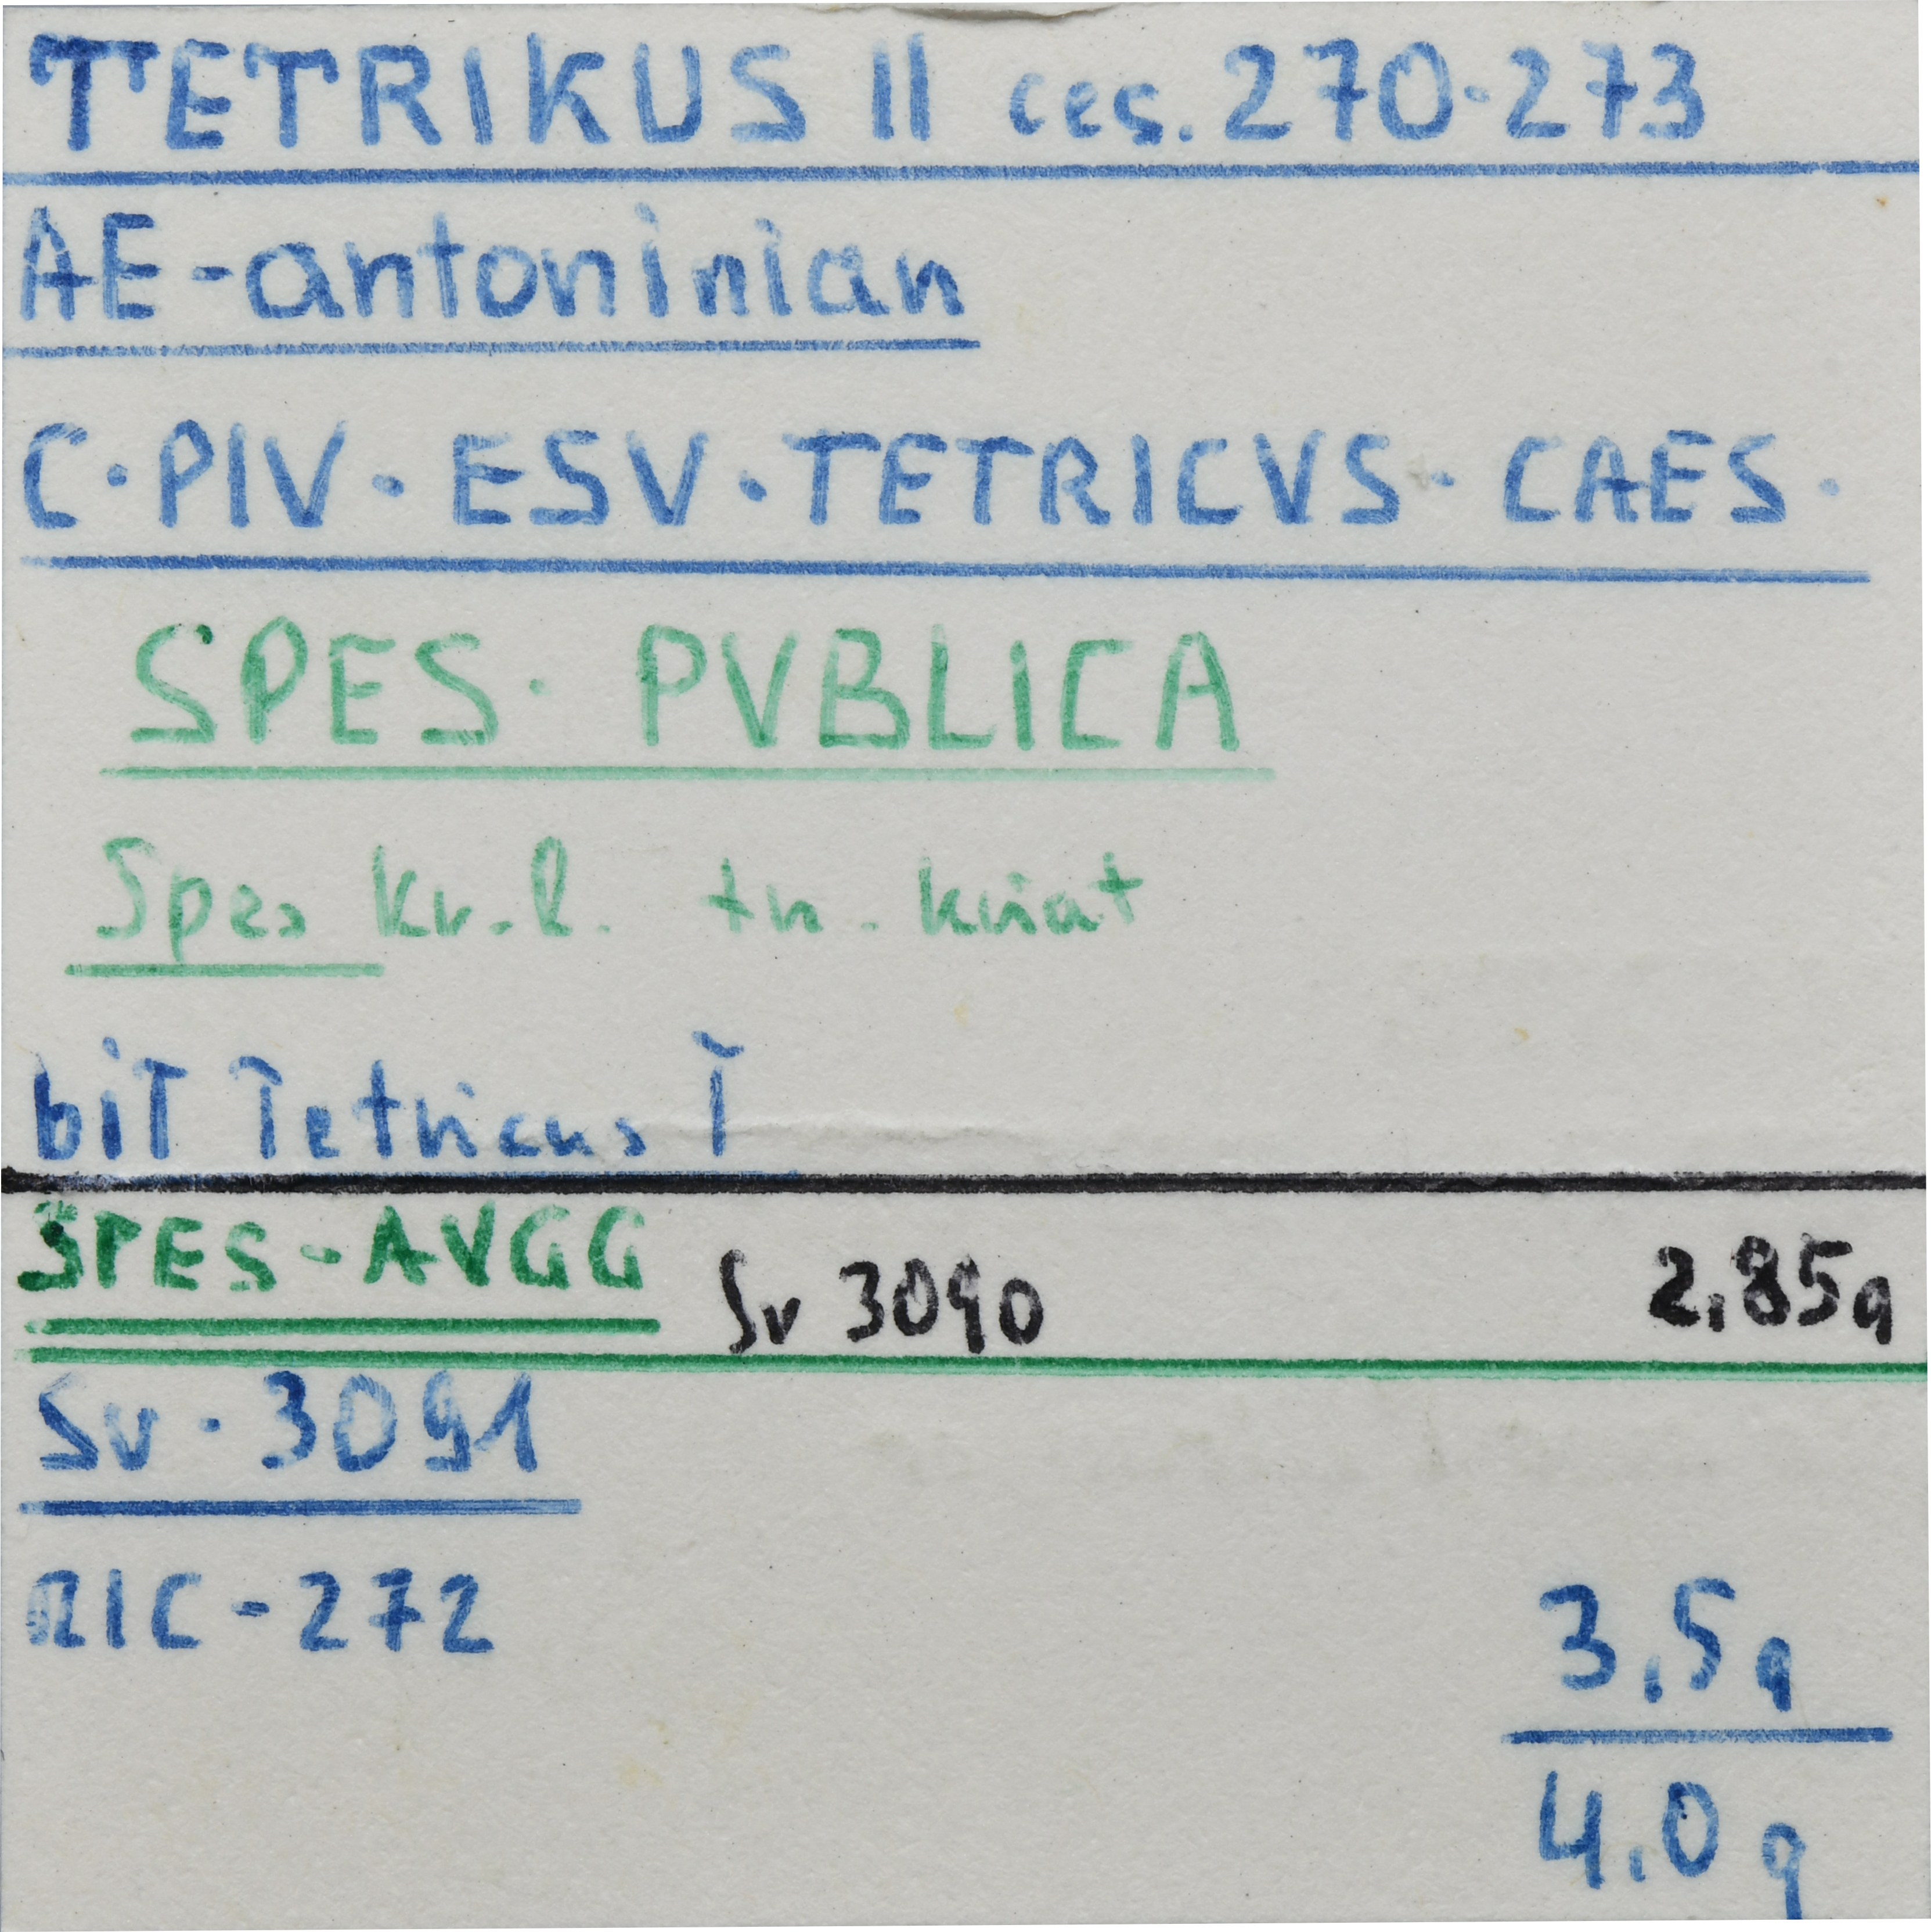 TETRIKUS II ces. 270-273
AE-antoninian
C·PIV·ESV·TETRICVS·CAES·
SPES· PVBLICA
Spes kr. l. tr. kwiat
bił Tetricus I
SPES-AVGG Sv 3090 2,85g
Sv·3091
RIC-272
3,5g
4,0g